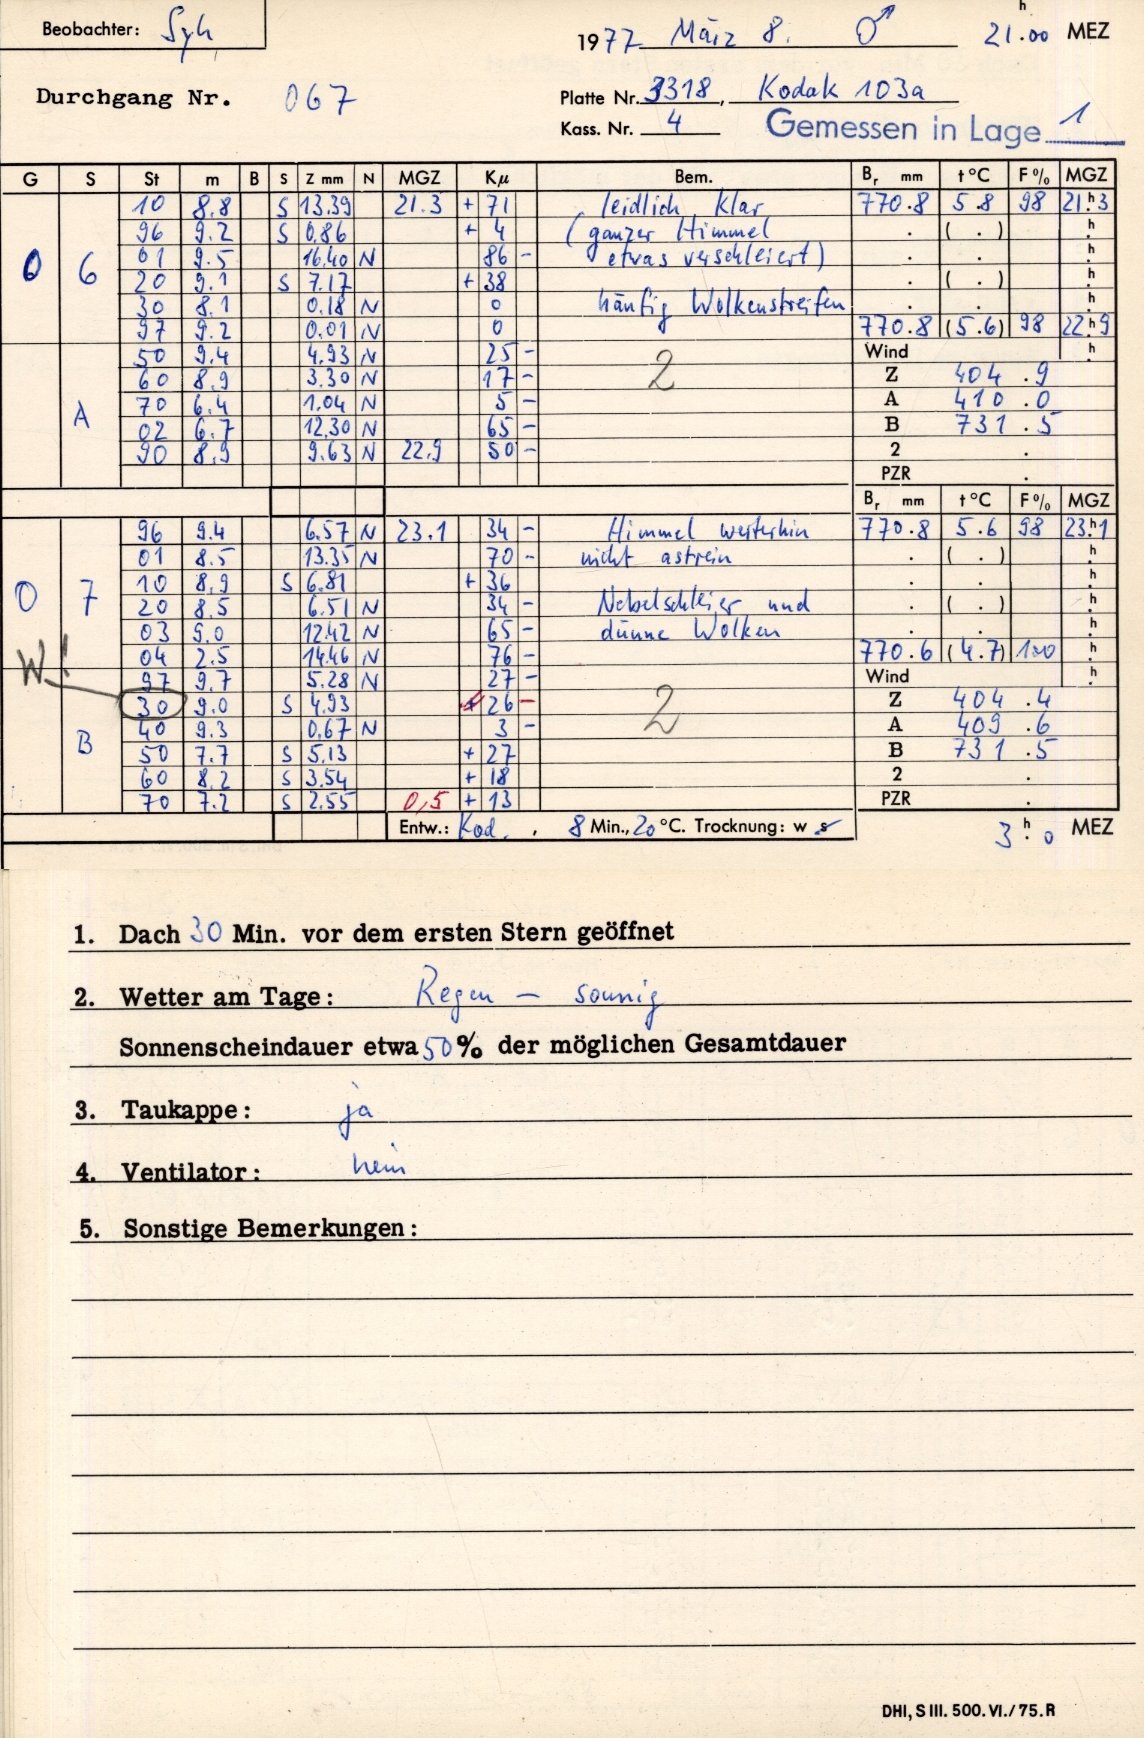 Beobachter: Syh
1977 März 8. ♂ 21.00 h MEZ
Durchgang Nr. 067
Platte Nr. 3318, Kodak 103a
Kass. Nr. 4 Gemessen in Lage 1
G S St m B S Z mm N MGZ Kμ Bem. Br mm t °C F% MGZ
10 8.8 S 13.39 21.3 + 71 leidlich klar 770.8 5.8 98 21h3
96 9.2 S 0.86 + 4 (ganzer Himmel . ( . ) h
0 6 01 9.5 16.40 N 86 - etwas verschleiert) . . h
20 9.1 S 7.17 + 38 . ( . ) h
30 8.1 0.18 N 0 häufig Wolkenstreifen . . h
97 9.2 0.01 N 0 770.8 (5.6) 98 22h9
50 9.4 4.93 N 25 - 2 Wind h
60 8.9 3.30 N 17 - Z 404.9
A 70 6.4 1.04 N 5 - A 410.0
02 6.7 12.30 N 65 - B 731.5
90 8.9 9.63 N 22.9 50 - 2 .
PZR .
Br mm t °C F% MGZ
96 9.4 6.57 N 23.1 34 - Himmel weiterhin 770.8 5.6 98 23h1
01 8.5 13.35 N 70 - nicht astrein . ( . ) h
0 7 10 8.9 S 6.81 + 36 . . h
20 8.5 6.51 N 34 - Nebelschleier und . ( . ) h
03 9.0 12.42 N 65 - dünne Wolken . . h
W! 04 2.5 14.46 N 76 - 770.6 (4.7) 100 h
97 9.7 5.28 N 27 - Wind h
30 9.0 S 4.93 + 26 - 2 Z 404.4
B 40 9.3 0.67 N 3 - A 409.6
50 7.7 S 5.13 + 27 B 731.5
60 8.2 S 3.54 + 18 2 .
70 7.2 S 2.55 0,5 + 13 PZR .
Entw.: Kod. , 8 Min., 20 °C. Trocknung: w s 3h.0 MEZ
1. Dach 30 Min. vor dem ersten Stern geöffnet
2. Wetter am Tage: Regen – sonnig
Sonnenscheindauer etwa 50% der möglichen Gesamtdauer
3. Taukappe: ja
4. Ventilator: nein
5. Sonstige Bemerkungen:
DHI, S III. 500. VI./75. R